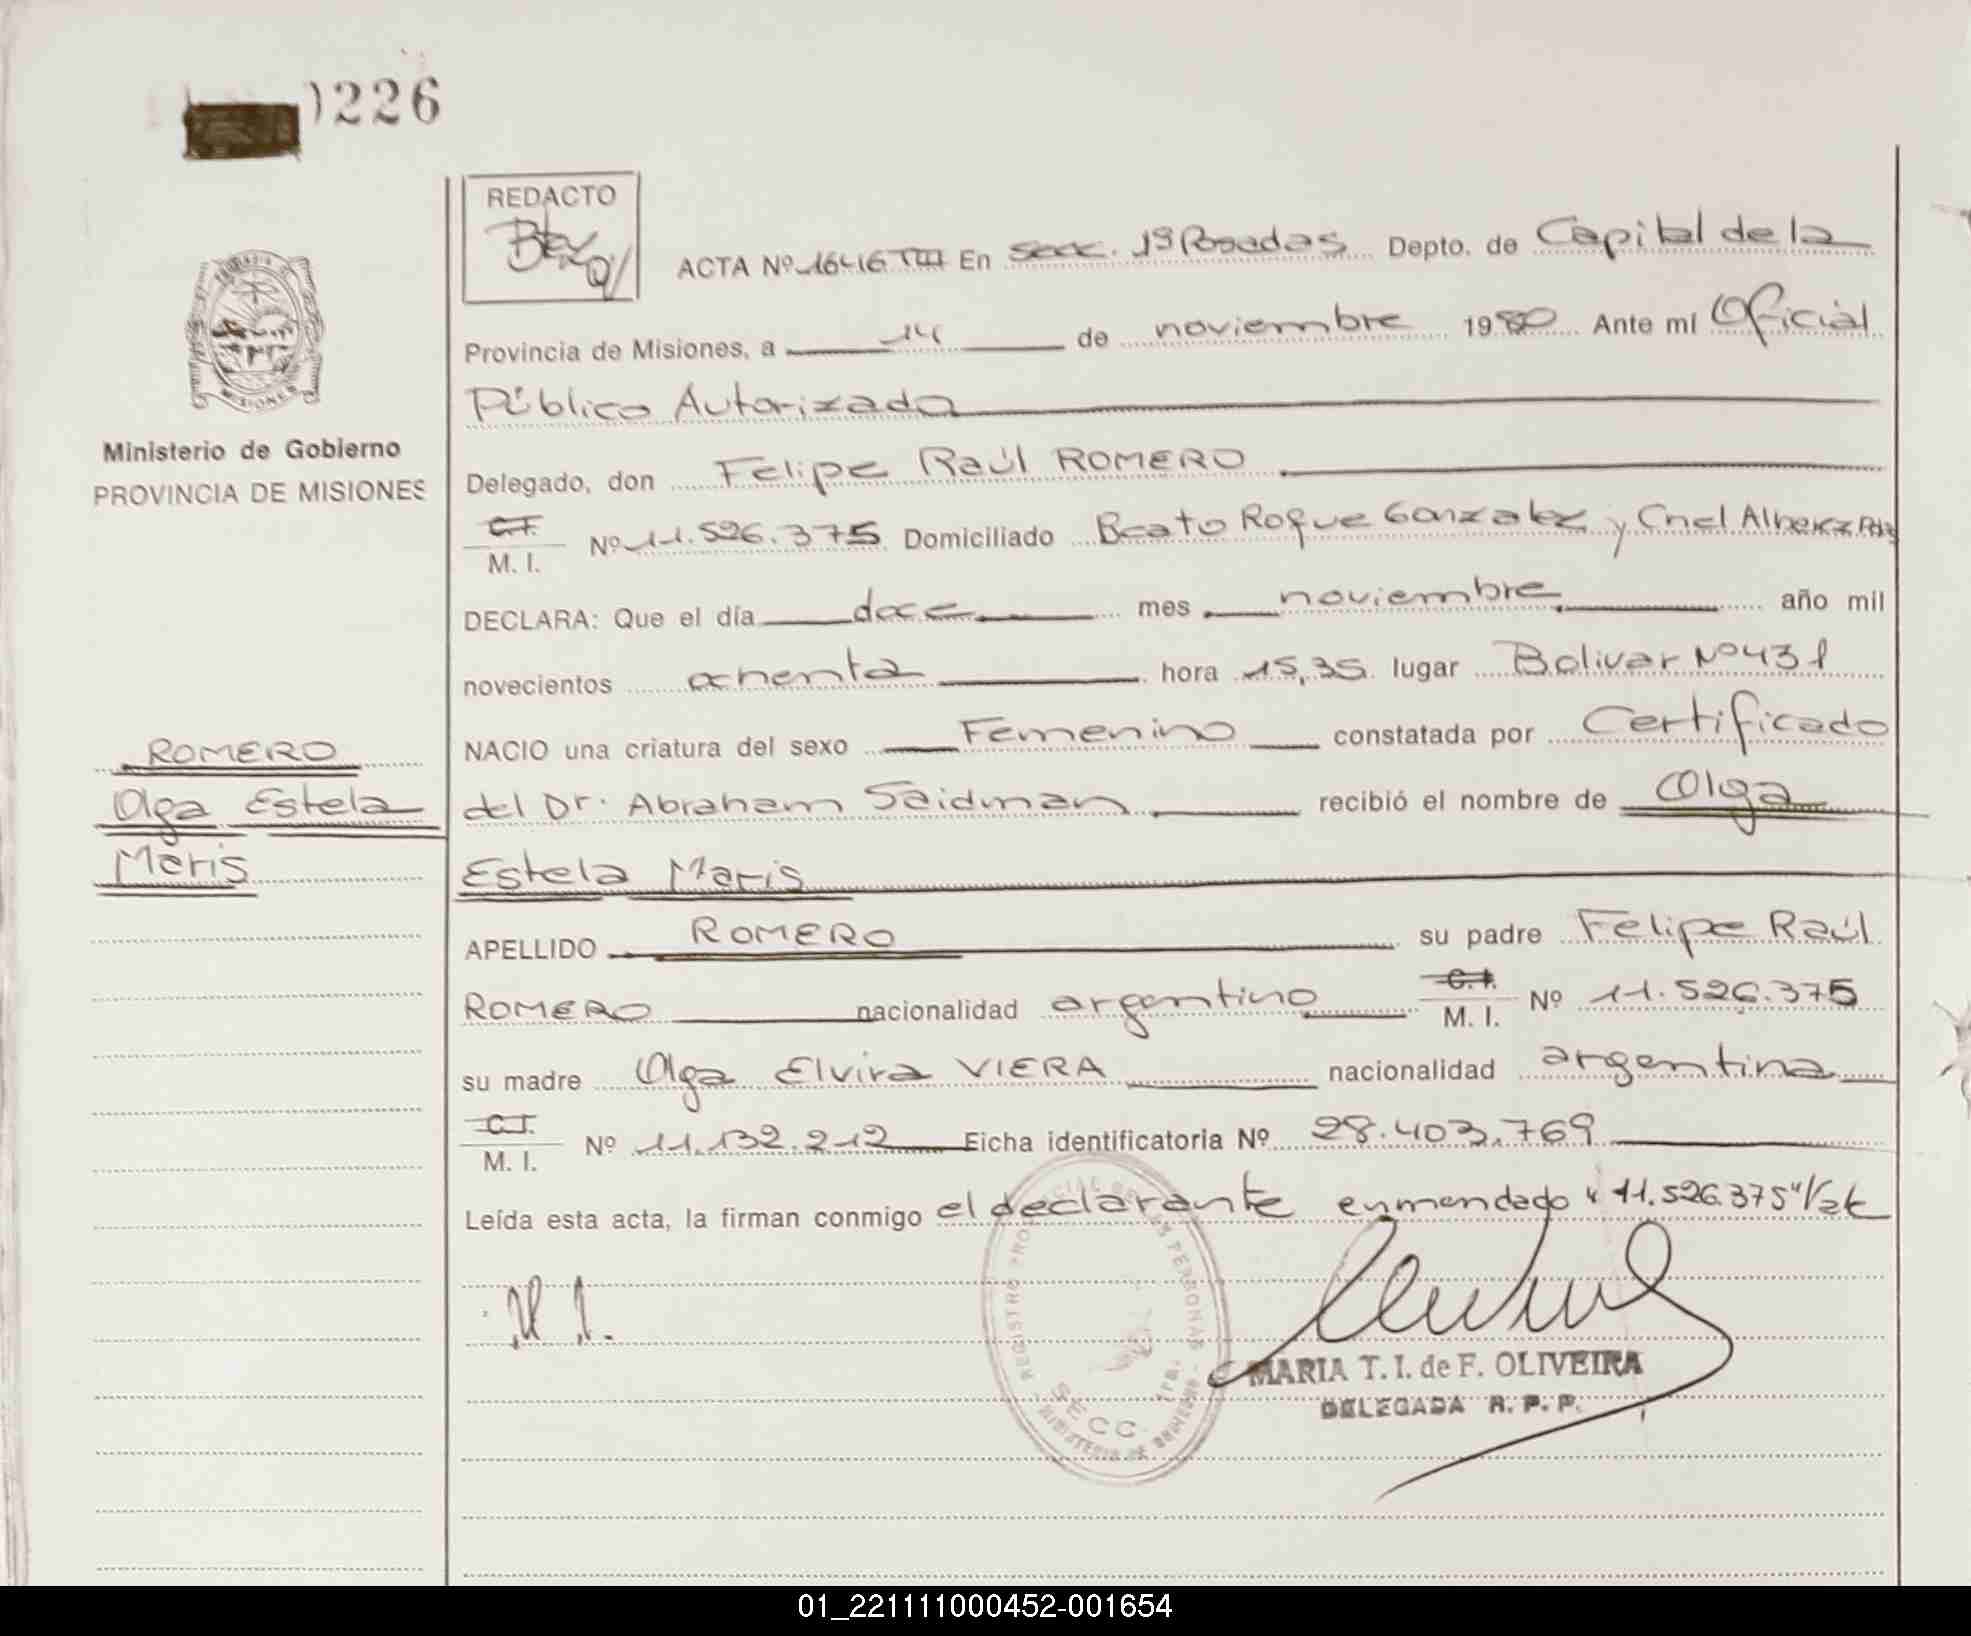 )226
REDACTO
ACTA Nº 1646 TIII En Secc. 1ª Posadas Depto. de Capital de la
Provincia de Misiones, a 14 de noviembre 1980 Ante mí Oficial
Público Autorizado
Ministerio de Gobierno
PROVINCIA DE MISIONES
Delegado, don Felipe Raúl ROMERO
C.I.
M. I. Nº 11.526.375 Domiciliado Beato Roque Gonzalez y Cnel Alberez Pdas
DECLARA: Que el día doce mes noviembre año mil
novecientos ochenta hora 15,35 lugar Bolivar Nº 431
NACIO una criatura del sexo Femenino constatada por Certificado
del Dr. Abraham Saidman recibió el nombre de Olga
Estela Maris
ROMERO
Olga Estela
Maris
APELLIDO ROMERO su padre Felipe Raúl
ROMERO nacionalidad argentino C.I. M. I. Nº 11.526.375
su madre Olga Elvira VIERA nacionalidad argentina
C.I.
M. I. Nº 11.132.212 Ficha identificatoria Nº 28.403.769
Leída esta acta, la firman conmigo el declarante enmendado "11.526.375"/vale
MARIA T. I. de F. OLIVEIRA
DELEGADA R. P. P.
SECC.
01_221111000452-001654